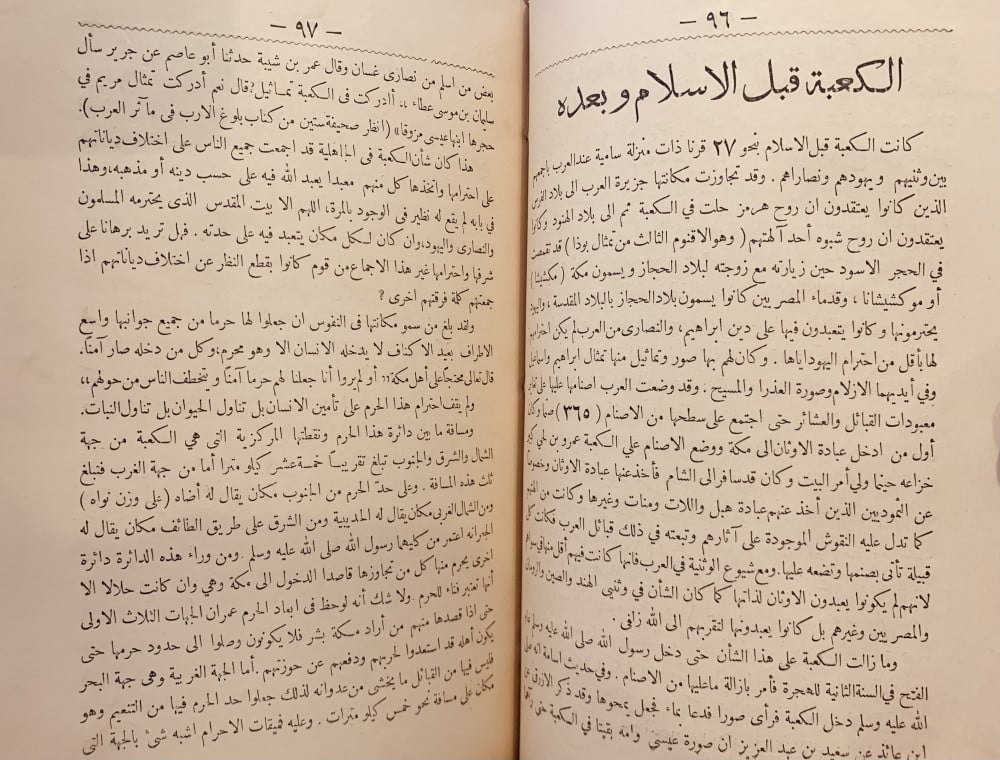 — ٩٦ —
الكعبة قبل الاسلام وبعده
كانت الكعبة قبل الاسلام بنحو ٢٧ قرنا ذات منزلة سامية عند العرب باجمعهم
بين وثنيهم ويهودهم ونصاراهم . وقد تجاوزت مكانتها جزيرة العرب الى بلاد الفرس
الذين كانوا يعتقدون ان روح هرمز حلت في الكعبة ثم الى بلاد الهنود وكانوا
يعتقدون ان روح شبوه أحد آلهتهم ( وهو الاقنوم الثالث من تمثال بوذا ) قد تقمصت
في الحجر الاسود حين زيارته مع زوجته لبلاد الحجاز ويسمون مكة ( مكشيشا )
أو موكشيشانا ، وقدماء المصريين كانوا يسمون بلاد الحجاز بالبلاد المقدسة ، واليهود
يحترمونها وكانوا يتعبدون فيها على دين ابراهيم ، والنصارى من العرب لم يكن احترامهم
لها بأقل من احترام اليهود اياها . وكان لهم بها صور وتماثيل منها تمثال ابراهيم واسماعيل
وفي أيديهما الازلام وصورة العذرا والمسيح . وقد وضعت العرب اصنامها عليها على تغاير
معبودات القبائل والعشائر حتى اجتمع على سطحها من الاصنام ( ٣٦٥ ) صنما وكان
أول من ادخل عبادة الاوثان الى مكة ووضع الاصنام علي الكعبة عمرو بن لحي كبير
خزاعه حينما ولي أمر البيت وكان قد سافر الى الشام فأخذ عنها عبادة الاوثان وخصوصا
عن الثموديين الذين أخذ عنهم عبادة هبل واللات ومنات وغيرها وكانت من الهتهم
كما تدل عليه النقوش الموجودة على آثارهم وتبعته في ذلك قبائل العرب فكانت كل
قبيلة تأتى بصنمها وتضعه عليها. ومع شيوع الوثنية في العرب فانها كانت فيهم أقل منها في سواهم
لانهم لم يكونوا يعبدون الاوثان لذاتها كما كان الشأن في وثنيى الهند والصين والرومان
والمصريين وغيرهم بل كانوا يعبدونها لتقربهم الى الله زلفى .
وما زالت الكعبة على هذا الشأن حتى دخل رسول الله صلى الله عليه وسلم
الفتح في السنة الثانية للهجرة فأمر بازالة ماعليها من الاصنام . وفي حديث اسامة انه صلى
الله عليه وسلم دخل الكعبة فرأى صورا فدعا بماء فجعل يمحوها وقد ذكر الازرقى عن
ابن عائذ عن سعيد بن عبد العزيز ان صورة عيسى وامه بقيتا في الكعبة حتى رآهما
— ٩٧ —
بعض من اسلم من نصارى غسان وقال عمر بن شيبة حدثنا أبو عاصم عن جرير سأل
سليمان بن موسى عطاء ،، أادركت فى الكعبة تماثيل؟ قال نعم أدركت تمثال مريم في
حجرها ابنها عيسى مزوقا» (انظر صحيفة ستين من كتاب بلوغ الارب فى مآثر العرب).
هذا كان شأن الكعبة في الجاهلية قد اجمعت جميع الناس على اختلاف دياناتهم
على احترامها واتخذها كل منهم معبدا يعبد الله فيه على حسب دينه أو مذهبه، وهذا
في بابه لم يقع له نظير فى الوجود بالمرة، اللهم الا بيت المقدس الذى يحترمه المسلمون
والنصارى واليهود، وان كان لكل مكان يتعبد فيه على حدته . فهل تريد برهانا على
شرفها واحترامها غير هذا الاجماع من قوم كانوا بقطع النظر عن اختلاف دياناتهم اذا
جمعتهم كلمة فرقتهم اخرى ؟
ولقد بلغ من سمو مكانتها فى النفوس ان جعلوا لها حرما من جميع جوانبها واسع
الاطراف بعيد الاكناف لا يدخله الانسان الا وهو محرم، وكل من دخله صار آمنا.
قال تعالى محتجا على أهل مكة ,, أو لم يروا أنا جعلنا لهم حرما آمنا و يتخطف الناس من حولهم ،،
ولم يقف احترام هذا الحرم على تأمين الانسان بل تناول الحيوان بل تناول النبات.
ومسافة ما بين دائرة هذا الحرم ونقطتها المركزية التى هي الكعبة من جهة
الشمال والشرق والجنوب تبلغ تقريبا خمسة عشر كيلو مترا أما من جهة الغرب فتبلغ
ثلث هذه المسافة . وعلى حد الحرم من الجنوب مكان يقال له أضاه (على وزن نواه )
ومن الشمال الغربى مكان يقال له الحديبية ومن الشرق على طريق الطائف مكان يقال له
الجعرانه اعتمر من كليهما رسول الله صلى الله عليه وسلم . ومن وراء هذه الدائرة دائرة
اخرى يحرم منها كل من تجاوزها قاصدا الدخول الى مكة وهي وان كانت حلالا الا
أنها تعتبر فناء للحرم . ولا شك أنه لوحظ فى ابعاد الحرم عمران الجهات الثلاث الاولى
حتى اذا قصدها منهم من أراد مكة بشر فلا يكونون وصلوا الى حدود حرمها حتى
يكون أهله قد استعدوا لحربهم ودفعهم عن حوزتهم . أما الجهة الغربية وهى جهة البحر
فليس فيها من القبائل ما يخشى من عدوانه لذلك جعلوا حد الحرم فيها من التنعيم وهو
مكان على مسافة نحو خمس كيلو مترات . وعليه فميقات الاحرام اشبه شئ بالجهة التى